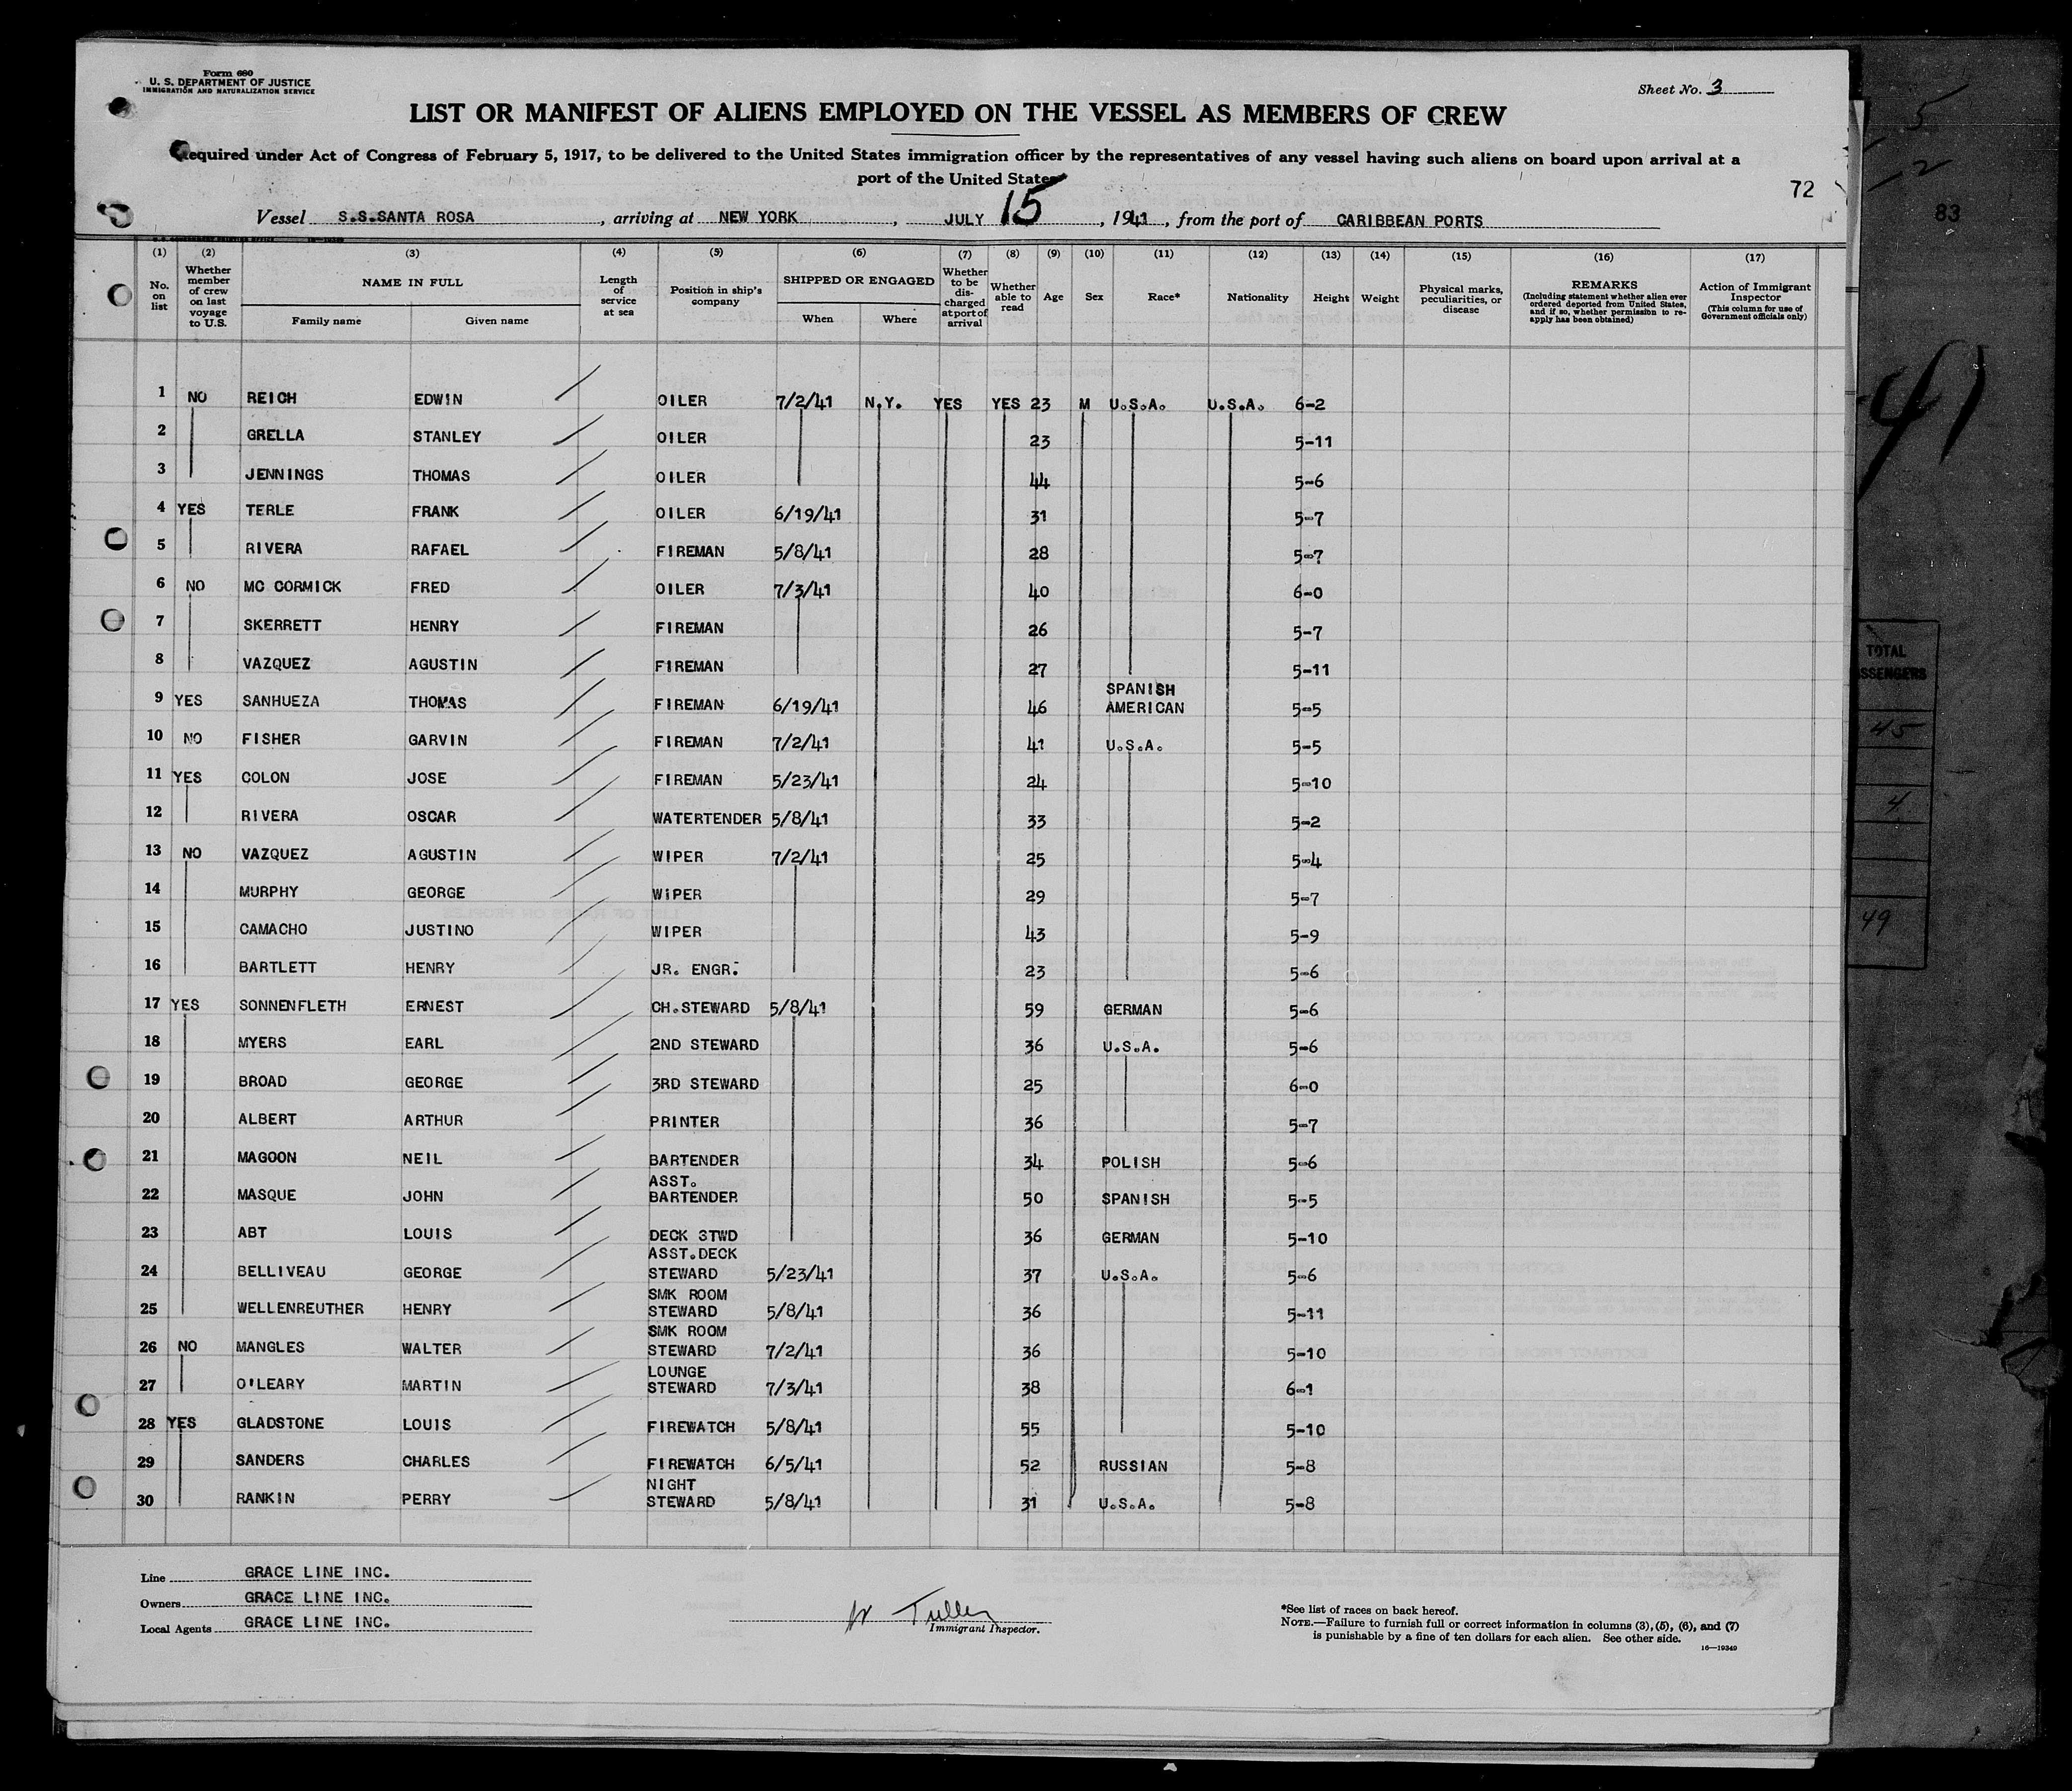 Form 680
U. S. DEPARTMENT OF JUSTICE
IMMIGRATION AND NATURALIZATION SERVICE
Sheet No. 3
LIST OR MANIFEST OF ALIENS EMPLOYED ON THE VESSEL AS MEMBERS OF CREW
Required under Act of Congress of February 5, 1917, to be delivered to the United States immigration officer by the representatives of any vessel having such aliens on board upon arrival at a
port of the United States
72
83
Vessel S.S.SANTA ROSA, arriving at NEW YORK, JULY 15, 1941, from the port of CARIBBEAN PORTS
(1) (2) (3) (4) (5) (6) (7) (8) (9) (10) (11) (12) (13) (14) (15) (16) (17)
No. on list
Whether member of crew on last voyage to U.S.
NAME IN FULL
Family name Given name
Length of service at sea
Position in ship's company
SHIPPED OR ENGAGED
When Where
Whether to be discharged at port of arrival
Whether able to read
Age
Sex
Race*
Nationality
Height
Weight
Physical marks, peculiarities, or disease
REMARKS
(Including statement whether alien ever ordered deported from United States, and if so, whether permission to re-apply has been obtained)
Action of Immigrant Inspector
(This column for use of Government officials only)
1 NO REICH EDWIN OILER 7/2/41 N.Y. YES YES 23 M U.S.A. U.S.A. 6-2
2 GRELLA STANLEY OILER 23 5-11
3 JENNINGS THOMAS OILER 44 5-6
4 YES TERLE FRANK OILER 6/19/41 31 5-7
5 RIVERA RAFAEL FIREMAN 5/8/41 28 5-7
6 NO MC CORMICK FRED OILER 7/3/41 40 6-0
7 SKERRETT HENRY FIREMAN 26 5-7
8 VAZQUEZ AGUSTIN FIREMAN 27 5-11
9 YES SANHUEZA THOMAS FIREMAN 6/19/41 46 SPANISH AMERICAN 5-5
10 NO FISHER GARVIN FIREMAN 7/2/41 41 U.S.A. 5-5
11 YES COLON JOSE FIREMAN 5/23/41 24 5-10
12 RIVERA OSCAR WATERTENDER 5/8/41 33 5-2
13 NO VAZQUEZ AGUSTIN WIPER 7/2/41 25 5-4
14 MURPHY GEORGE WIPER 29 5-7
15 CAMACHO JUSTINO WIPER 43 5-9
16 BARTLETT HENRY JR. ENGR. 23 5-6
17 YES SONNENFLETH ERNEST CH.STEWARD 5/8/41 59 GERMAN 5-6
18 MYERS EARL 2ND STEWARD 36 U.S.A. 5-6
19 BROAD GEORGE 3RD STEWARD 25 6-0
20 ALBERT ARTHUR PRINTER 36 5-7
21 MAGOON NEIL BARTENDER 34 POLISH 5-6
22 MASQUE JOHN ASST. BARTENDER 50 SPANISH 5-5
23 ABT LOUIS DECK STWD 36 GERMAN 5-10
24 BELLIVEAU GEORGE ASST.DECK STEWARD 5/23/41 37 U.S.A. 5-6
25 WELLENREUTHER HENRY SMK ROOM STEWARD 5/8/41 36 5-11
26 NO MANGLES WALTER SMK ROOM STEWARD 7/2/41 36 5-10
27 O'LEARY MARTIN LOUNGE STEWARD 7/3/41 38 6-1
28 YES GLADSTONE LOUIS FIREWATCH 5/8/41 55 5-10
29 SANDERS CHARLES FIREWATCH 6/5/41 52 RUSSIAN 5-8
30 RANKIN PERRY NIGHT STEWARD 5/8/41 31 U.S.A. 5-8
Line GRACE LINE INC.
Owners GRACE LINE INC.
Local Agents GRACE LINE INC.
Immigrant Inspector.
*See list of races on back hereof.
NOTE.—Failure to furnish full or correct information in columns (3), (5), (6), and (7)
is punishable by a fine of ten dollars for each alien. See other side.
16—19349
41
TOTAL
45
4
49